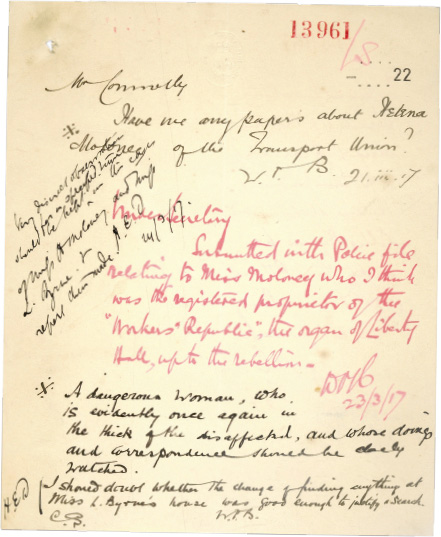 13961/S
22
Mr Connolly
Have we any papers about Helena
Moloney of the Transport Union?
W. P. B. 21.iii.17
Very discreet observation
for a specified time
should be held in the case
of Miss H Moloney and Miss
L. Byrne &
report then made H.E.D
Under Secretary
Submitted with Police file
relating to Miss Moloney who I think
was the registered proprietor of the
"Workers' Republic", the organ of Liberty
Hall, up to the rebellion -
23/3/17
A dangerous woman, who
is evidently once again in
the thick of the disaffected, and whose doings
and correspondence should be closely
watched.
I should doubt whether the chance of finding anything at
Miss L. Byrne's house was good enough to justify a search.
H.E.D
W.P.B.